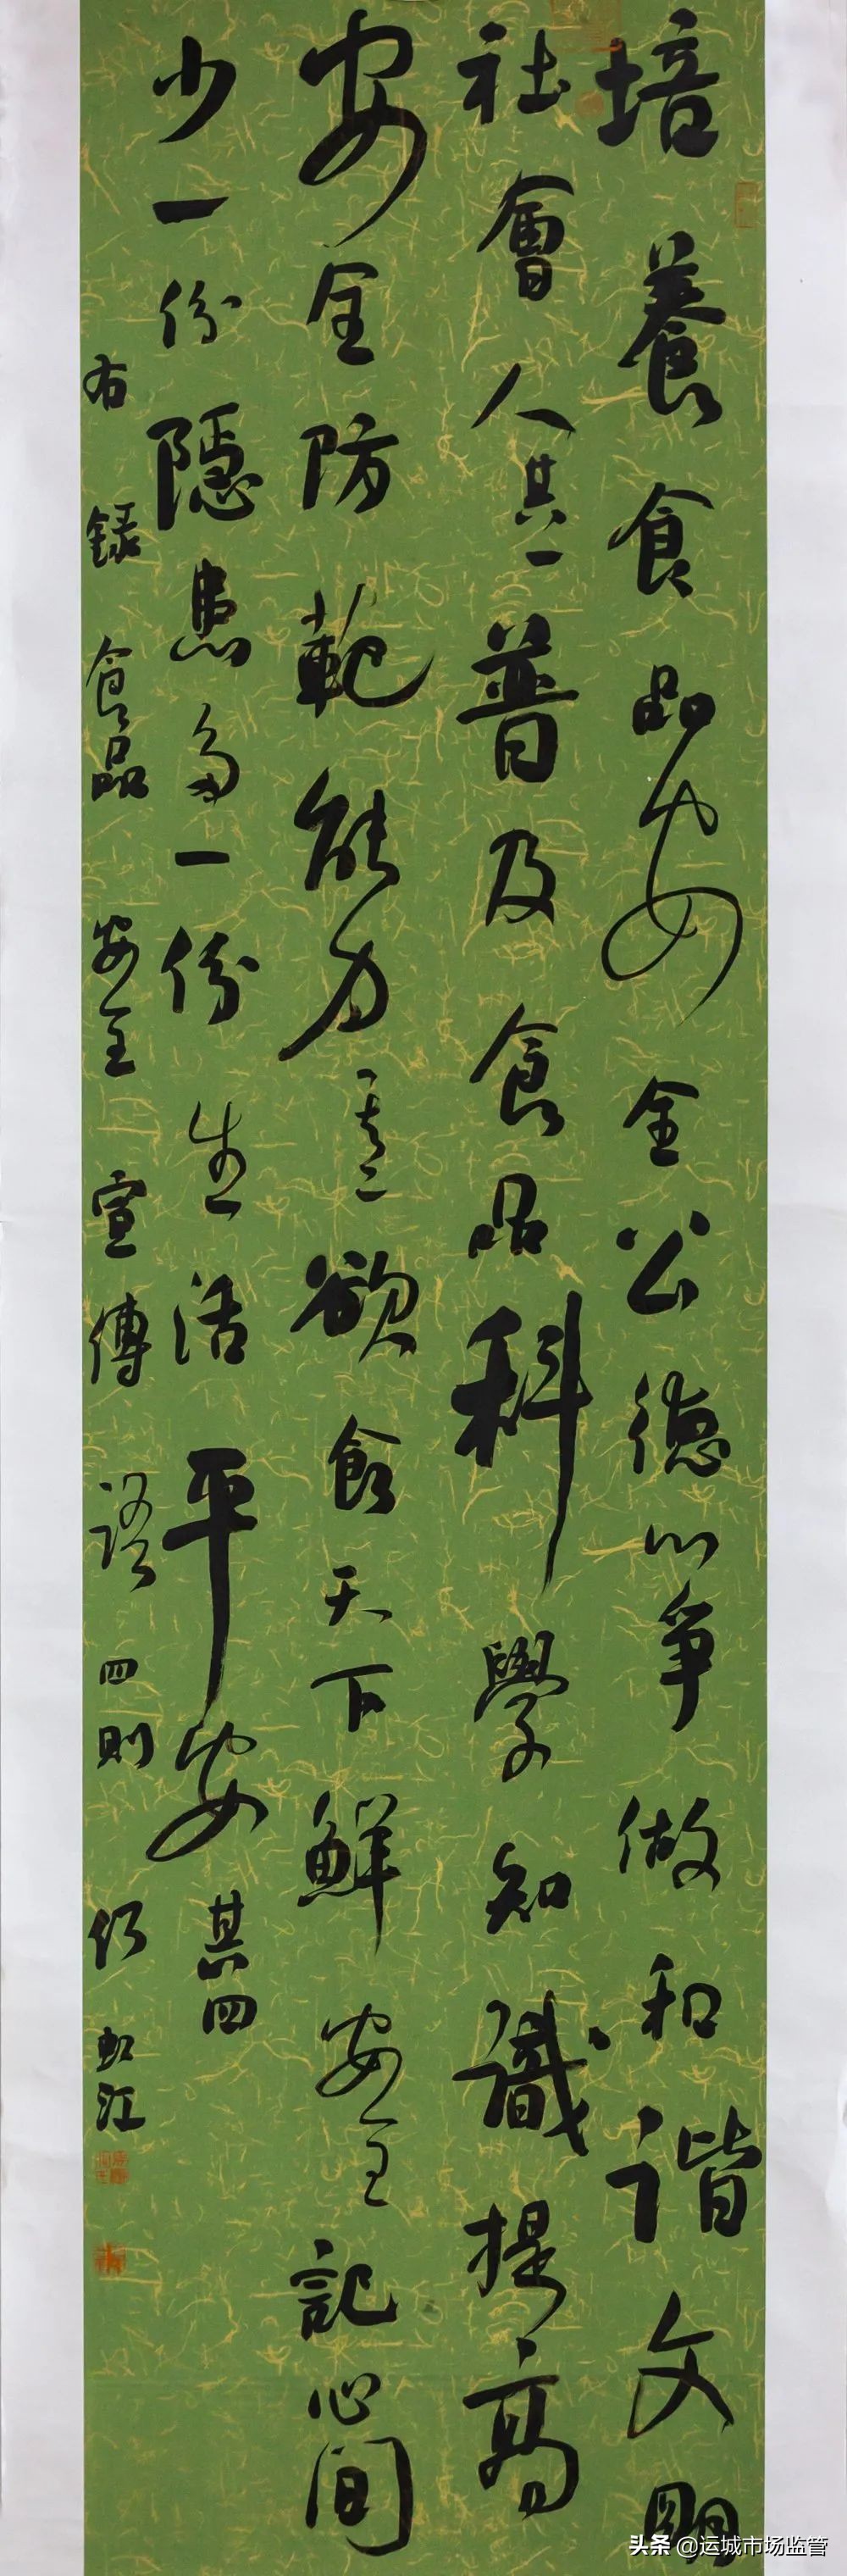 培養食品安全公德心争做和谐文明
社會人其一普及食品科學知識提高
安全防範能力其二欲食天下鮮安全記心间
少一份隱患多一份生活平安其四
右録食品安全宣傳語四則 虹江
头条 @运城市场监管